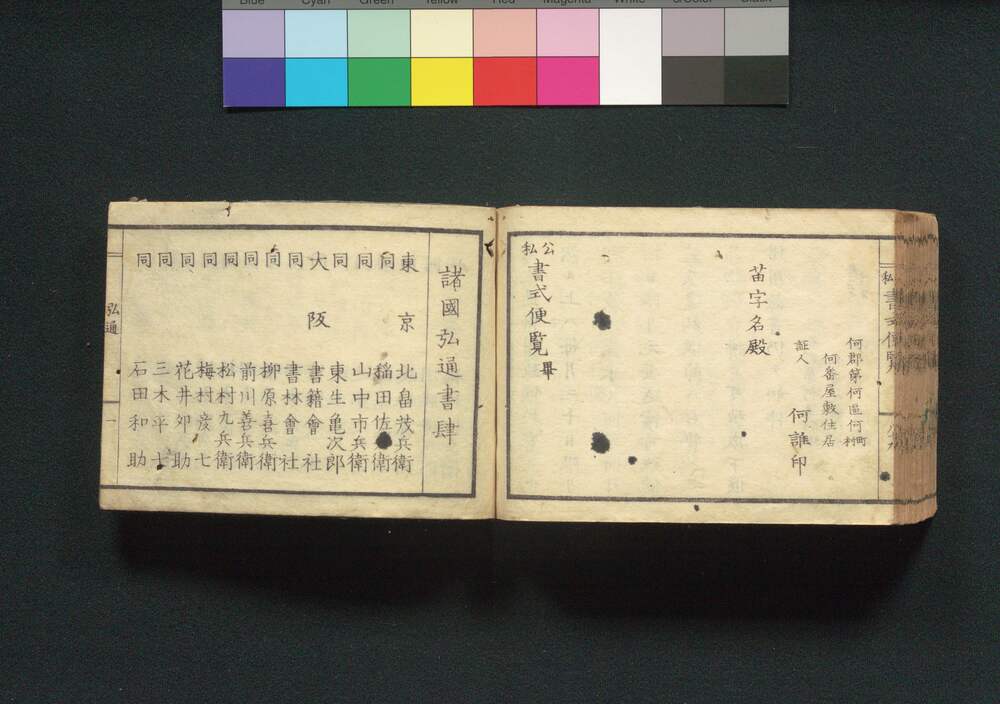 Blue Cyan Green Yellow Red Magenta White 3/Color Black
何郡第何區何町村
何番屋敷住居
証人 何誰印
苗字名殿
公私書式便覧畢
諸國弘通書肆
東京 北畠茂兵衛
同 稲田佐衛
同 山中市兵衛
同 東生亀次郎
大阪 書籍會社
同 書林會社
同 柳原喜兵衛
同 前川善兵衛
同 松村九兵衛
同 梅村彦七
同 花井卯助
同 三木平士
同 石田和助
弘通
一